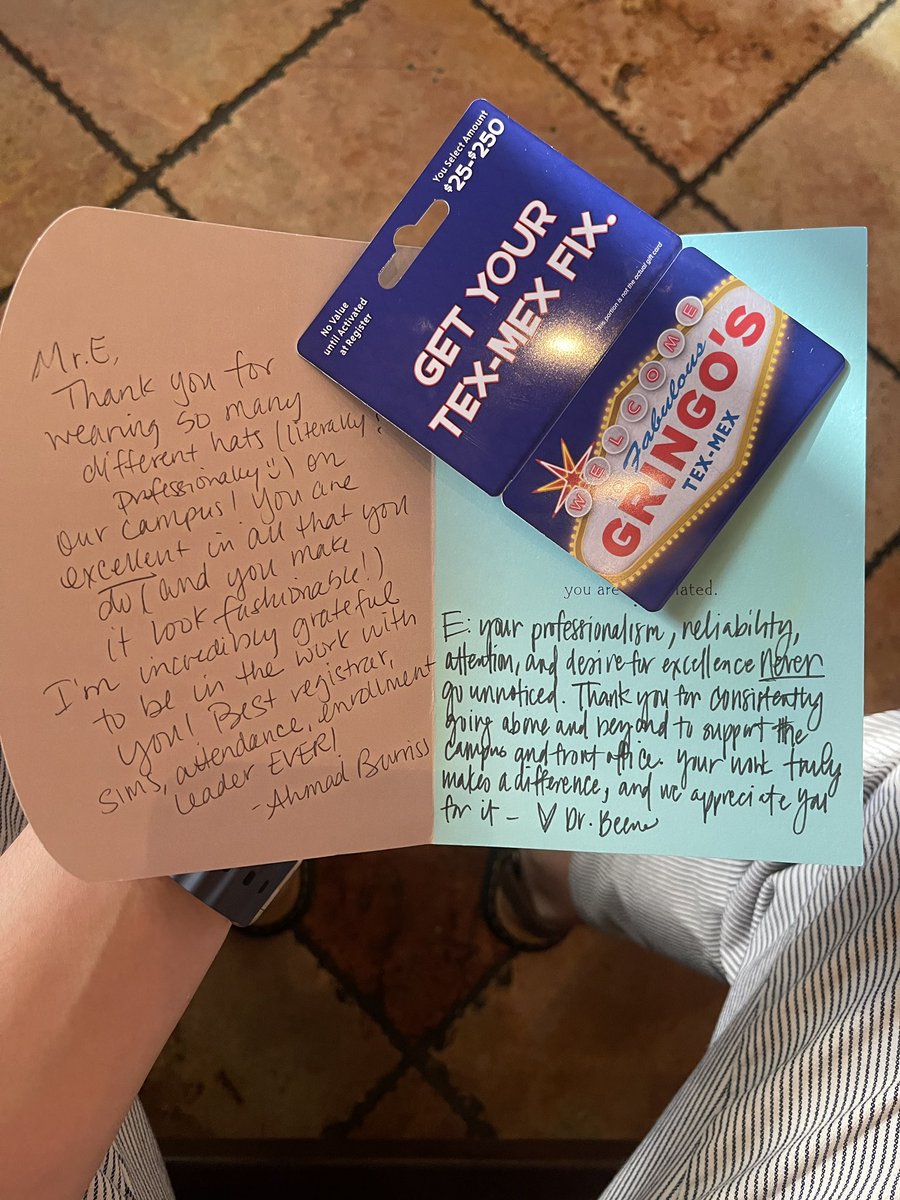 Mr. E,
Thank you for
wearing so many
different hats (literally &
professionally :)) on
our campus! You are
excellent in all that you
do (and you make
it look fashionable!)
I'm incredibly grateful
to be in the work with
you! Best registrar,
SIMS, attendance, enrollment
leader EVER!
- Ahmad Burriss
You Select Amount
$25-$250
No Value
until Activated
at Register
GET YOUR
TEX-MEX FIX.
This portion is not the actual gift card
WELCOME
Fabulous
GRINGO'S
TEX-MEX
you are
E: your professionalism, reliability,
attention, and desire for excellence never
go unnoticed. Thank you for consistently
going above and beyond to support the
campus and front office. your work truly
makes a difference, and we appreciate you
for it - ♡ Dr. Beene